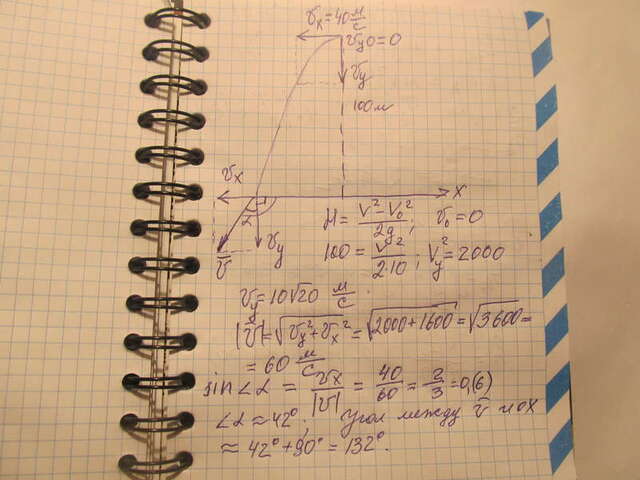 vx = 40 м/с
vy0 = 0
vy
100м
vx
x
α
vy
v
H = (V² − V₀²)/2g; v₀ = 0
100 = V²/2·10; Vy² = 2000
vy = 10√20 м/с.
|v| = √(vy² + vx²) = √(2000 + 1600) = √3600 =
= 60 м/с
sin∠α = vx/|v| = 40/60 = 2/3 = 0,(6)
∠α ≈ 42°, Угол между v и ох
≈ 42° + 90° = 132°.